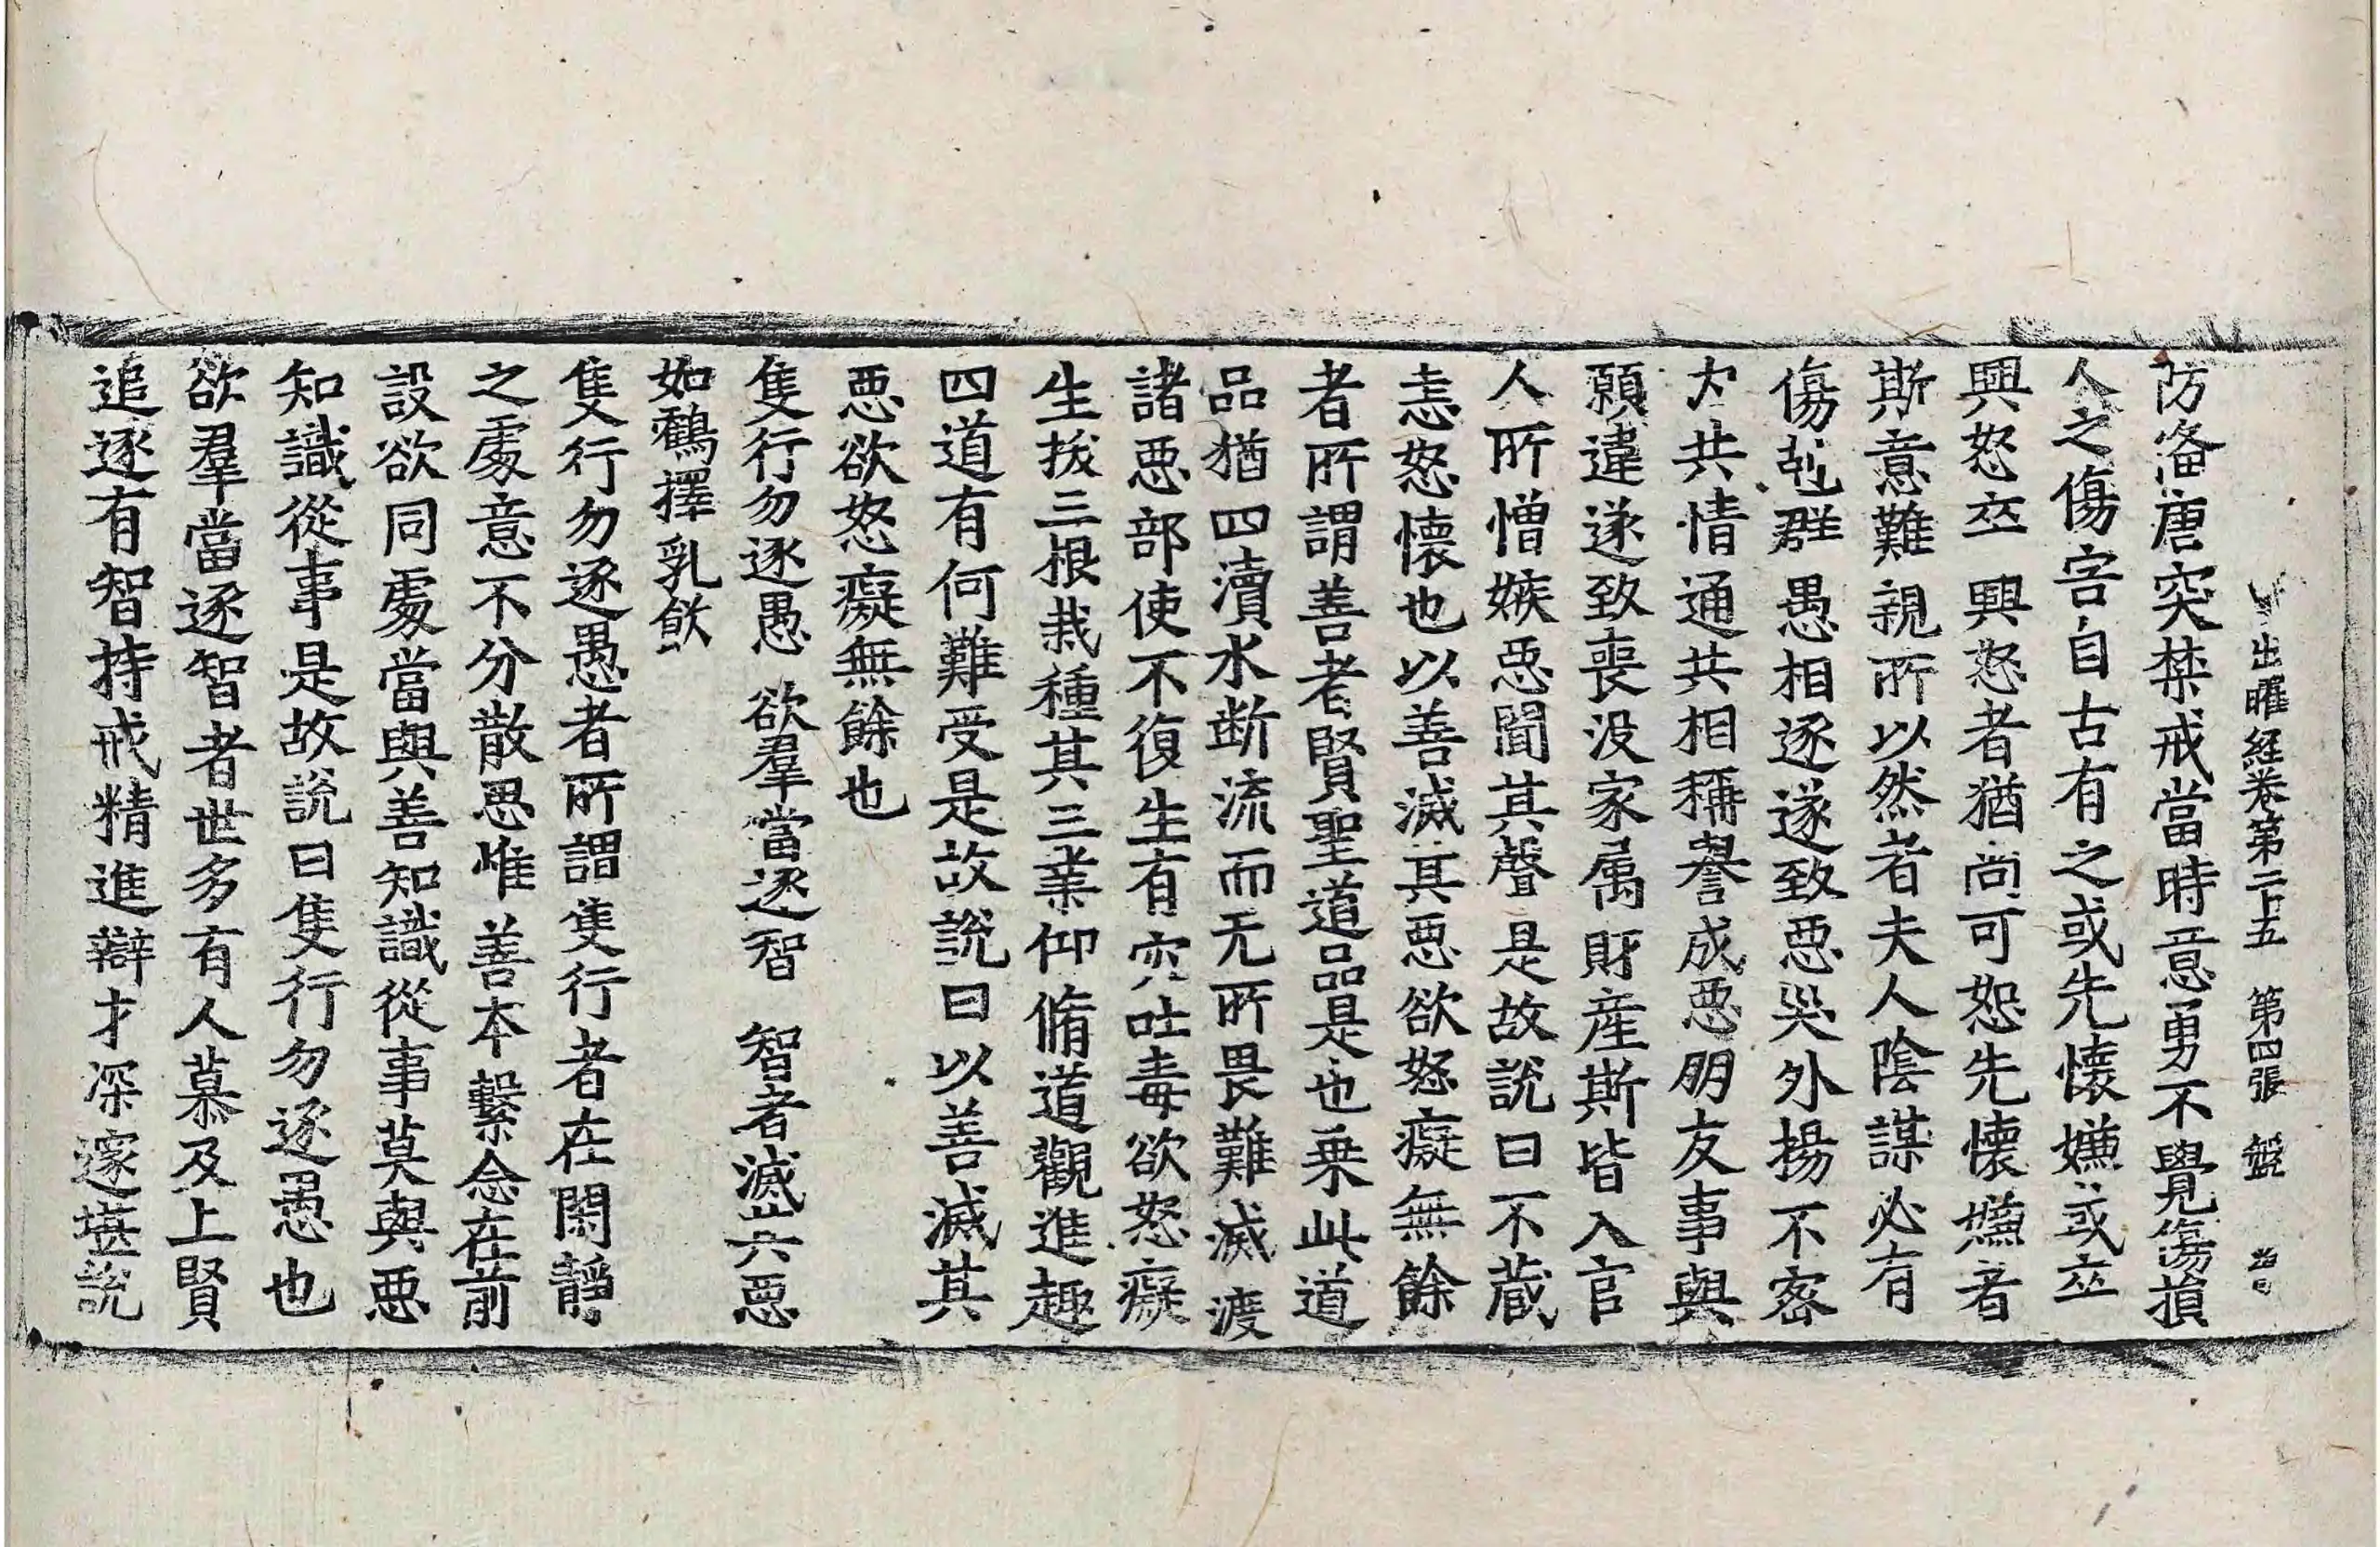 出曜經卷第二十五　第四張　盤
防俻唐突禁戒當時意勇不覺傷損
人之傷害自古有之或先懷嫌或卒
興怒卒興怒者猶尚可恕先懷嫌者
斯意難親所以然者夫人陰謀必有
傷剋群愚相逐遂致惡災外揚不密
内共情通共相稱譽成惡朋友事與
願違遂致喪没家属財産斯皆入官
人所憎嫉惡聞其聲是故說曰不蔵
恚怒懷也以善滅其惡欲怒癡無餘
者所謂善者賢聖道品是也乗此道
品猶四瀆水断流而无所畏難滅渡
諸惡部使不復生有穴吐毒欲怒癡
生拔三根栽種其三業仰脩道觀進趣
四道有何難受是故說曰以善滅其
惡欲怒癡無餘也
隻行勿逐愚　欲羣當逐智　智者滅其惡
如鸛擇乳飲
隻行勿逐愚者所謂隻行者在閑靜
之處意不分散思惟善本繫念在前
設欲同處當與善知識從事莫與惡
知識從事是故說曰隻行勿逐愚也
欲羣當逐智者世多有人慕及上賢
追逐有智持戒精進辯才深邃堪説